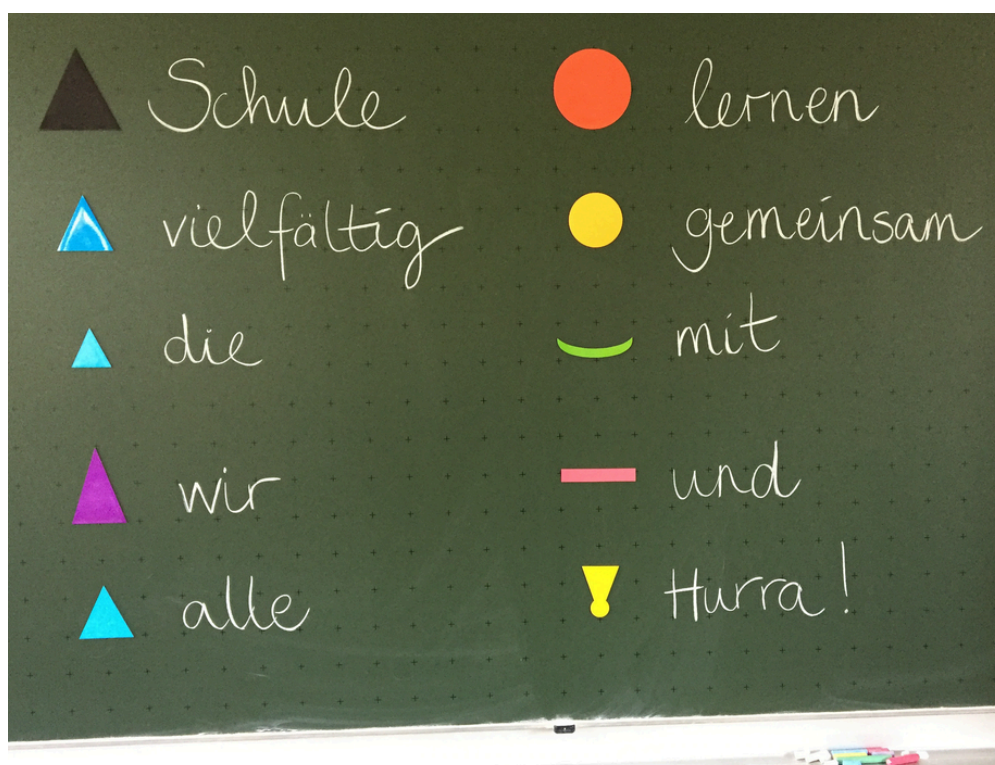 Schule
vielfältig
die
wir
alle
lernen
gemeinsam
mit
und
Hurra!